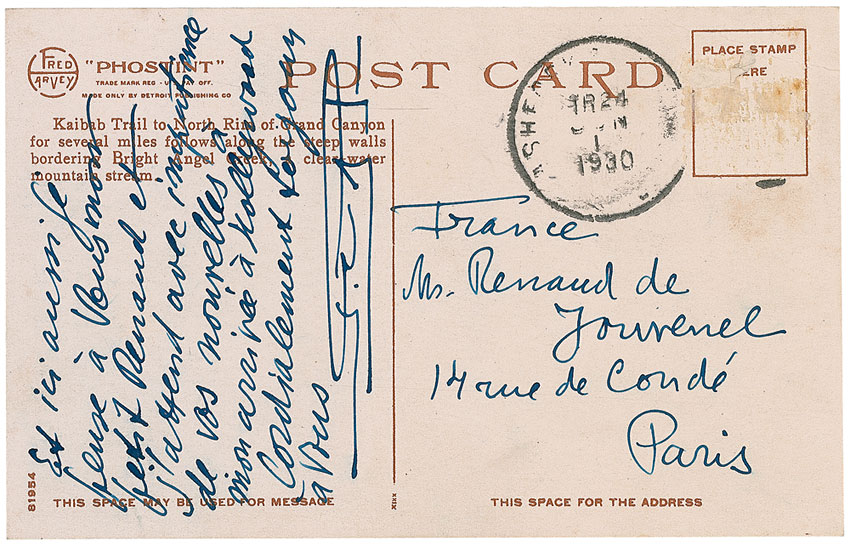 FRED HARVEY
"PHOSTINT"
TRADE MARK REG. U.S. PAT. OFF.
MADE ONLY BY DETROIT PUBLISHING CO
POST CARD
PLACE STAMP
HERE
Kaibab Trail to North Rim of Grand Canyon
for several miles follows along the steep walls
bordering Bright Angel Creek, a clear-water
mountain stream.
TR 24
JUN
1
1930
Et ici aussi je
pense à Vous mon
petit Renaud et
j'attend avec impatience
de vos nouvelles à
mon arrivée à Hollywood
Cordialement toujours
à Vous
France
Ms. Renaud de
Jouvenel
14 rue de Condé
Paris
81954
THIS SPACE MAY BE USED FOR MESSAGE
THIS SPACE FOR THE ADDRESS